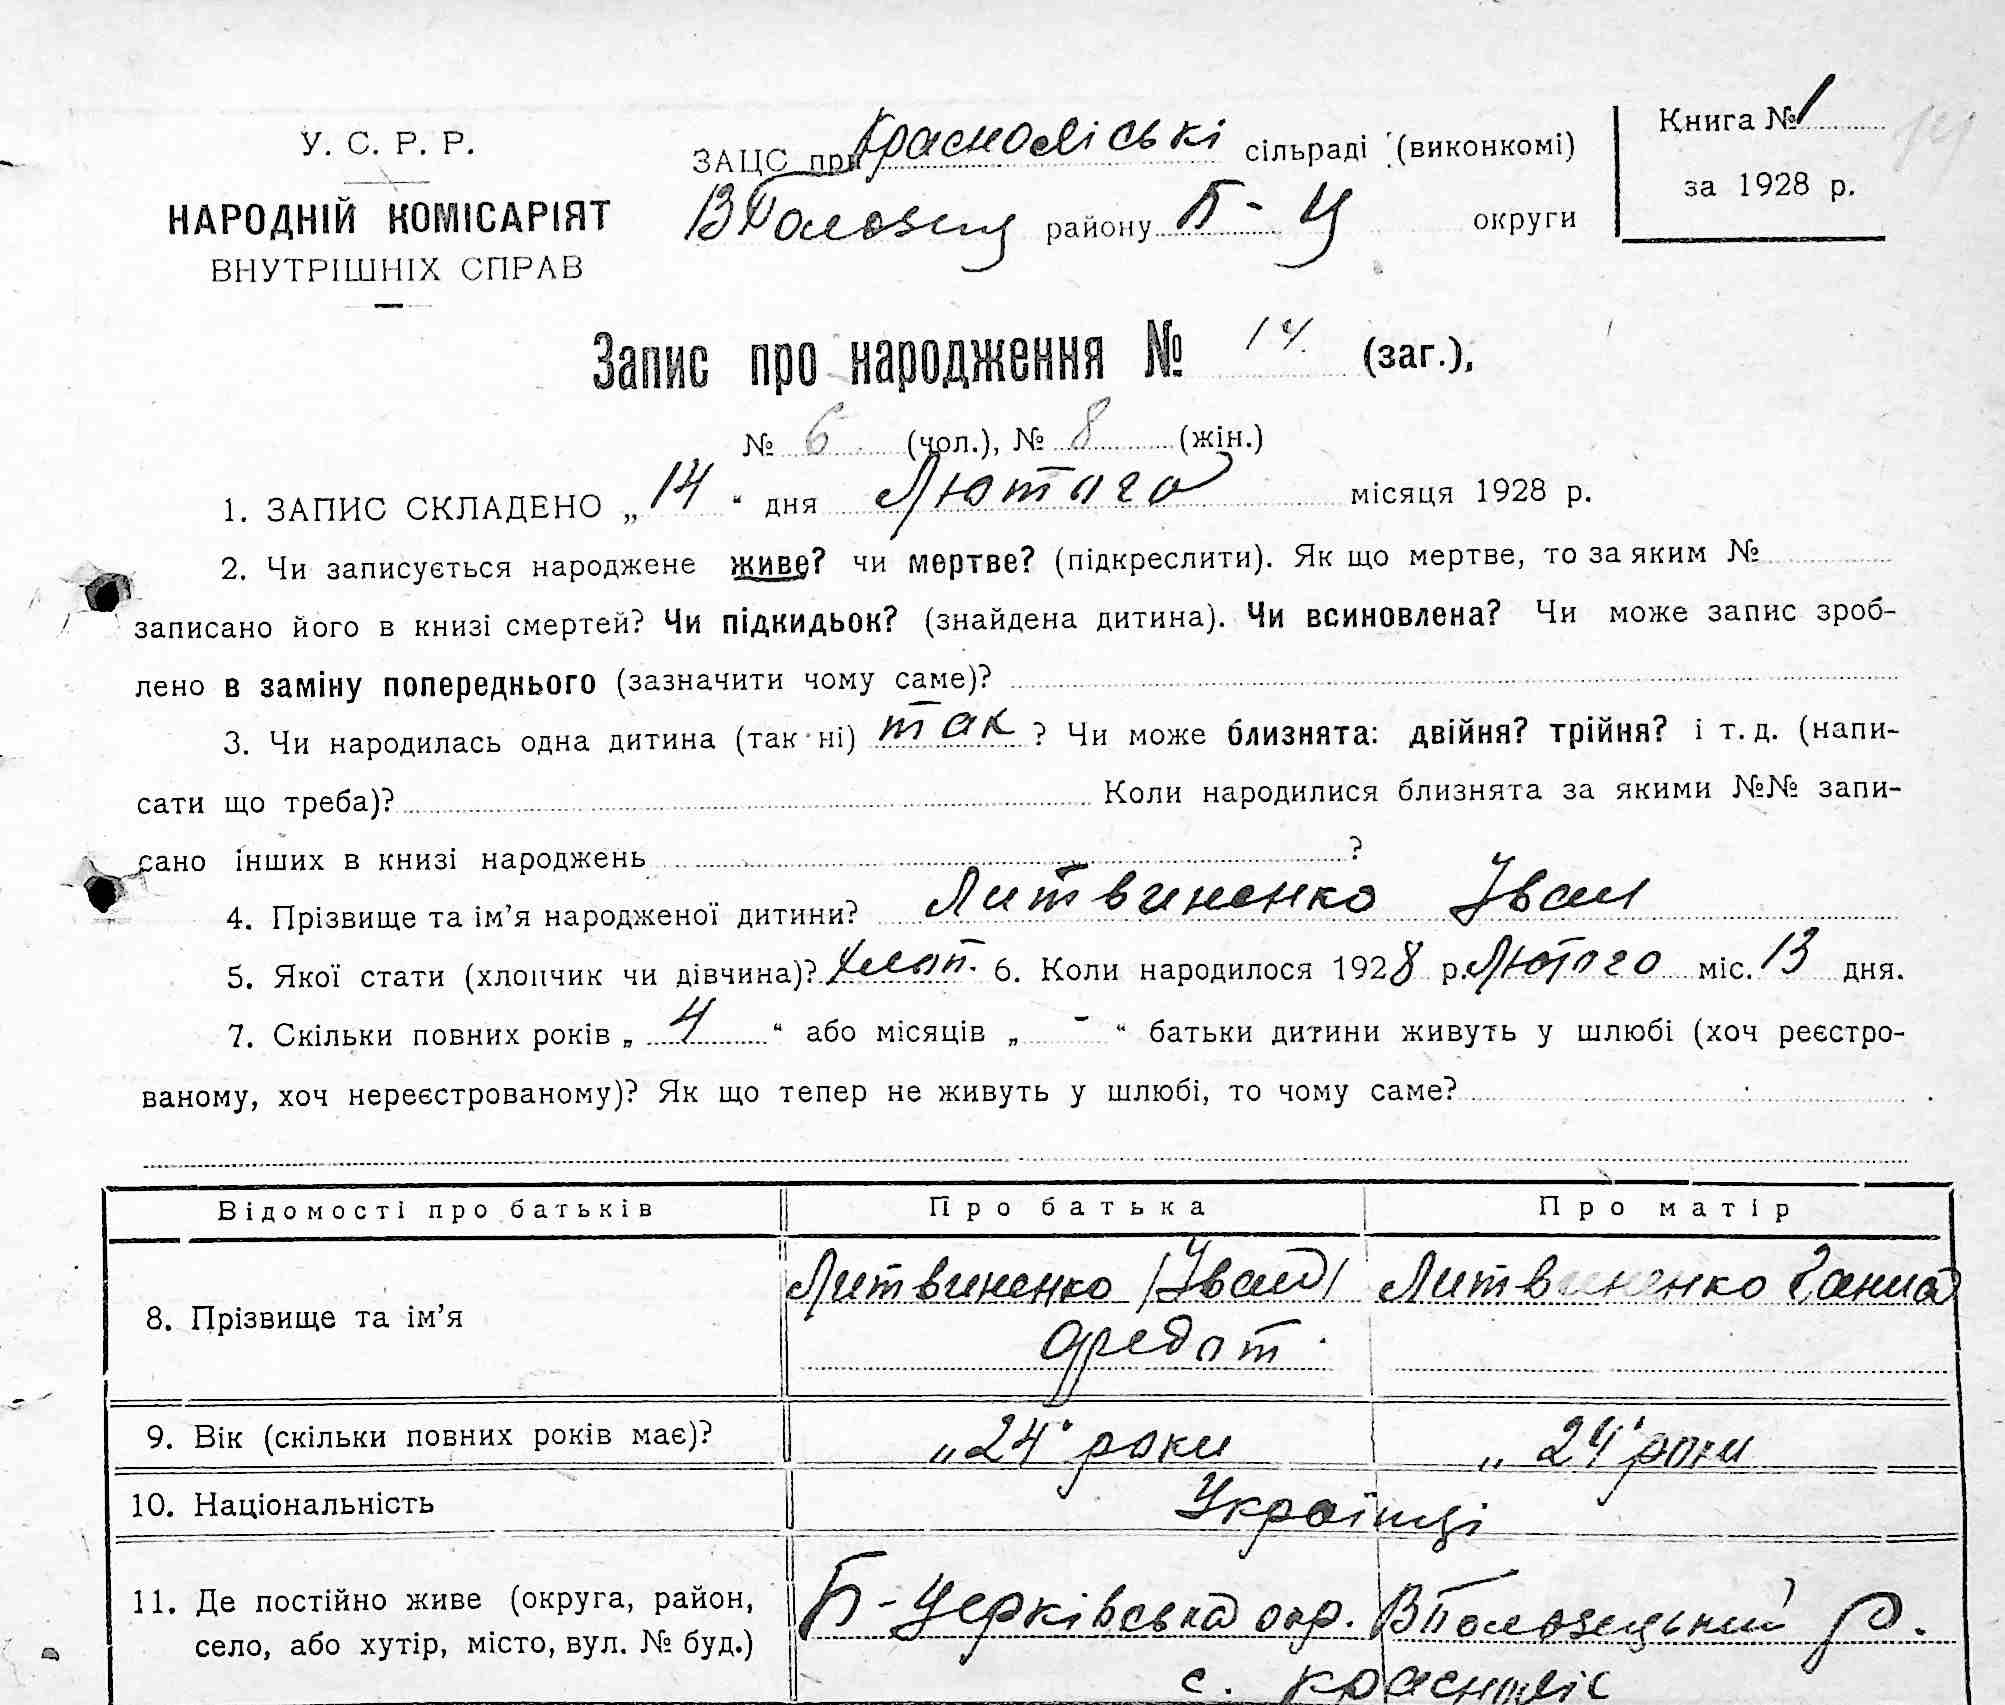 У. С. Р. Р.
НАРОДНІЙ КОМІСАРІЯТ
ВНУТРІШНІХ СПРАВ
ЗАЦС при Красноліські сільраді (виконкомі)
району Б-Ц округи
Книга № 1
за 1928 р.
Запис про народження № 14 (заг.),
№ 6 (чол.), № 8 (жін.)
1. ЗАПИС СКЛАДЕНО „14“ дня Лютого місяця 1928 р.
2. Чи записується народжене живе? чи мертве? (підкреслити). Як що мертве, то за яким №
записано його в книзі смертей? Чи підкидьок? (знайдена дитина). Чи всиновлена? Чи може запис зроб-
лено в заміну попереднього (зазначити чому саме)?
3. Чи народилась одна дитина (так ні) так ? Чи може близнята: двійня? трійня? і т. д. (напи-
сати що треба)? Коли народилися близнята за якими №№ запи-
сано інших в книзі народжень ?
4. Прізвище та ім’я народженої дитини? Литвиненко Іван
5. Якої стати (хлопчик чи дівчина)? хлоп. 6. Коли народилося 1928 р. Лютого міс. 13 дня.
7. Скільки повних років „ 4 “ або місяців „ - “ батьки дитини живуть у шлюбі (хоч реєстро-
ваному, хоч нереєстрованому)? Як що тепер не живуть у шлюбі, то чому саме?
Відомості про батьків Про батька Про матір
8. Прізвище та ім’я Литвиненко /Іван/ Литвиненко Ганна
9. Вік (скільки повних років має)? „24" роки „24" роки
10. Національність Українці
11. Де постійно живе (округа, район,
село, або хутір, місто, вул. № буд.)
Б-Церківська окр. ВПоловецький р.
с. Красноліс